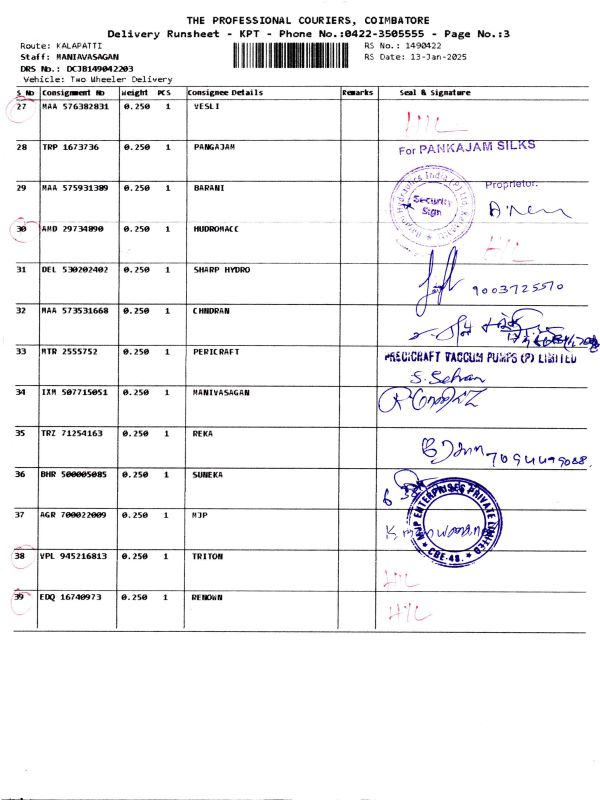 THE PROFESSIONAL COURIERS, COIMBATORE
Delivery Runsheet - KPT - Phone No.:0422-3505555 - Page No.:3
Route: KALAPATTI RS No.: 1490422
Staff: MANIAVASAGAN RS Date: 13-Jan-2025
DRS No.: DCJB149042203
Vehicle: Two Wheeler Delivery
S No Consignment No Weight PCS Consignee Details Remarks Seal & Signature
27 MAA 576382831 0.250 1 VESLI
28 TRP 1673736 0.250 1 PANGAJAM For PANKAJAM SILKS
29 MAA 575931389 0.250 1 BARANI Proprietor.
Security
Sign
30 AMD 29734890 0.250 1 HUDROMACC
31 DEL 530202402 0.250 1 SHARP HYDRO 9003725570
32 MAA 573531668 0.250 1 CHNDRAN
33 MTR 2555752 0.250 1 PERICRAFT PRECICRAFT VACCUM PUMPS (P) LIMITED
34 IXM 507715051 0.250 1 MANIVASAGAN
35 TRZ 71254163 0.250 1 REKA
36 BHR 500005085 0.250 1 SUNEKA
37 AGR 700022009 0.250 1 MJP MJP ENTERPRISES PRIVATE LIMITED
CBE-48.
38 VPL 945216813 0.250 1 TRITON
39 EDQ 16740973 0.250 1 RENOWN